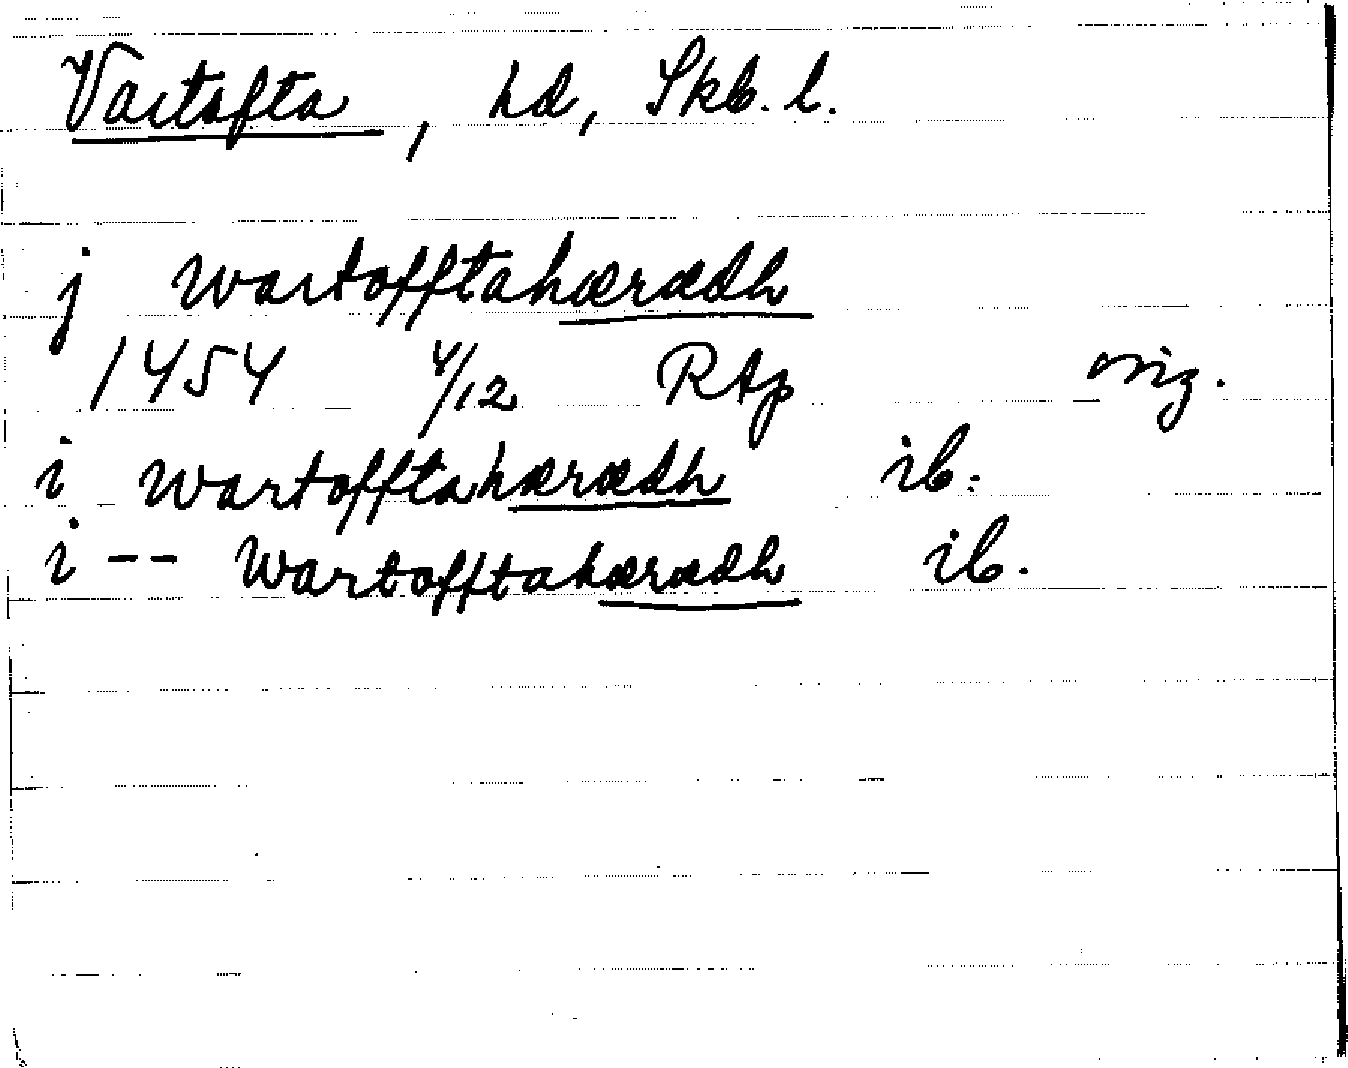 Vartofta, hd, Skb. l.
j wartofftahærædh
1454 4/12 RAp orig.
i wartofftahærædh ib.
i -- Wartofftahærædh ib.